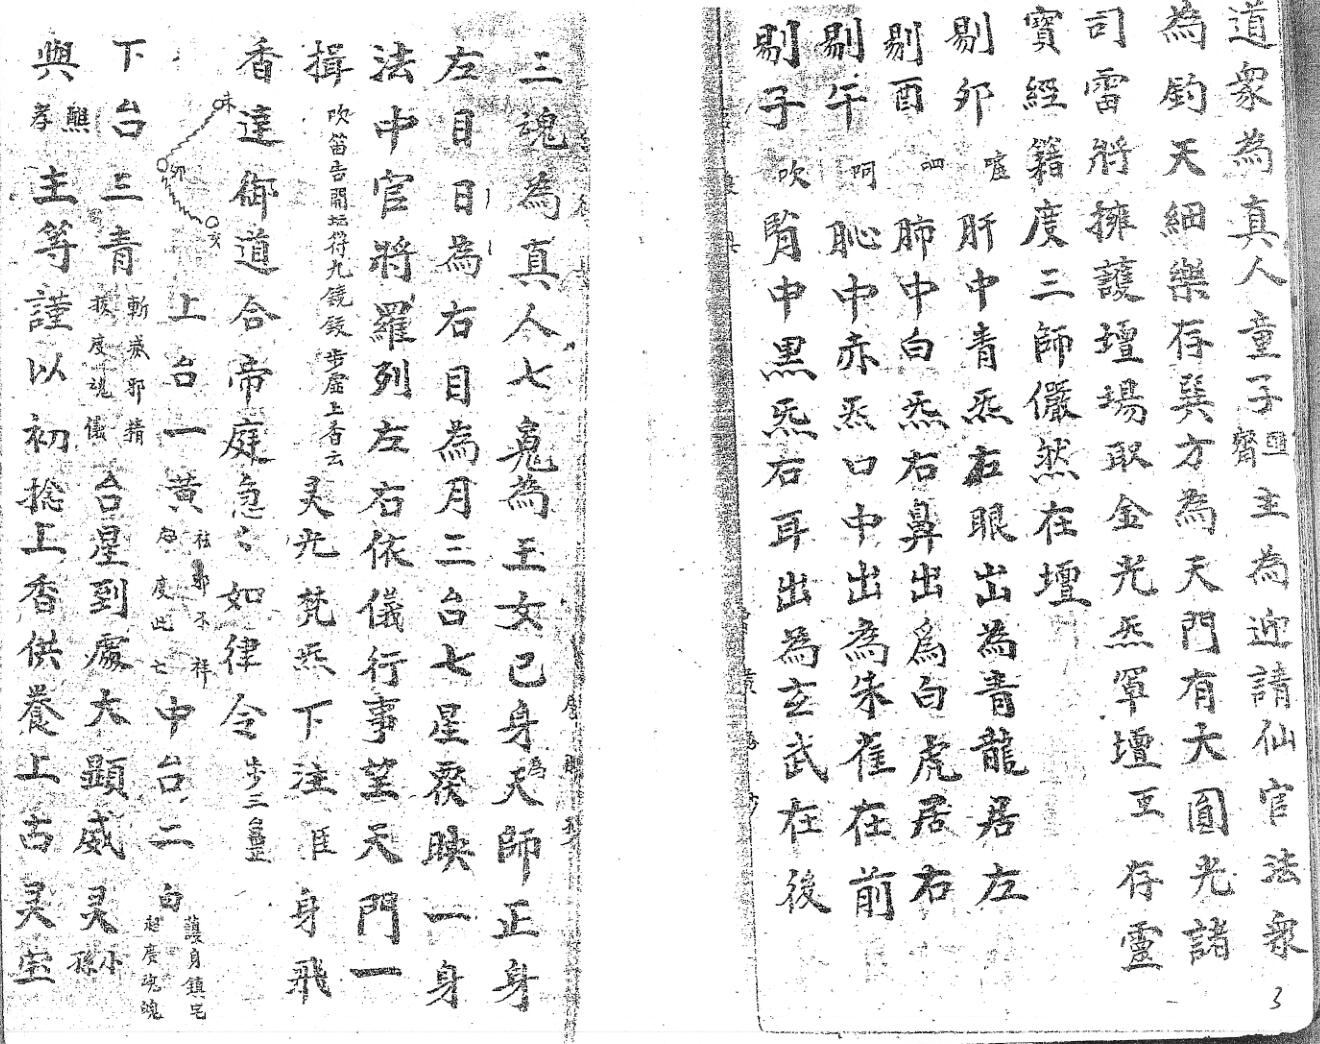 道衆為真人童子醮齋主為迎請仙官法衆
為鈞天細樂存巽方為天門有大圓光諸
司雷將擁護壇場取金光炁罩壇 存靈
寶經籍度三師儼然在壇
剔卯 噓 肝中青炁左眼出為青龍居左
剔酉 呬 肺中白炁右鼻出為白虎居右
剔午 呵 心中赤炁口中出為朱雀在前
剔子 吹 腎中黑炁右耳出為玄武在後
三魂為真人七魄為玉女己身為天師正身
左目日為右目為月三台七星覆映一身
法中官將羅列左右依儀行事望天門一
揖 吹笛告開壇符九鐃鈸步虛上香云 灵光梵炁下注臣身飛
香達御道合帝庭急〻如律令 步三台罡
未 卯 亥 上台一黃 祛邪不祥 度此亡 中台二白 護身鎮宅 起度魂魄
下台三青 斬滅邪精 拔度魂儀 台星到處大顯威灵 小
與 醮孝 主等謹以初捻上香供養上古灵宝
3